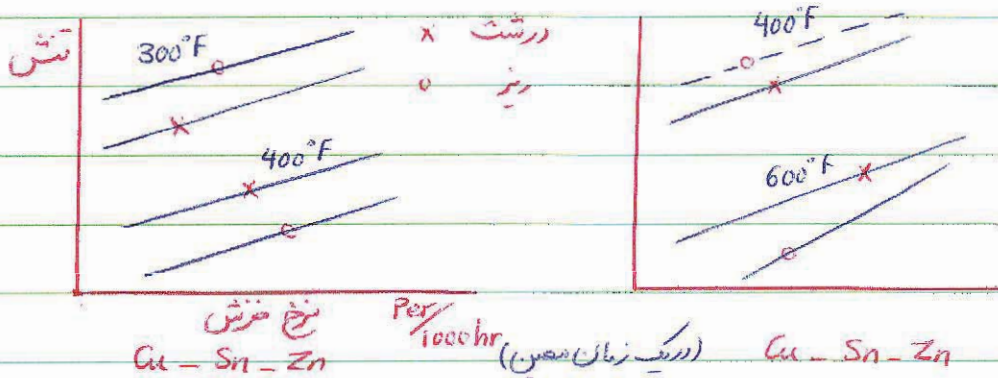 تنش
300°F
x درشت
o ریز
400°F
400°F
600°F
نرخ خزش
Per/1000hr
(در یک زمان معین)
Cu - Sn - Zn
Cu - Sn - Zn